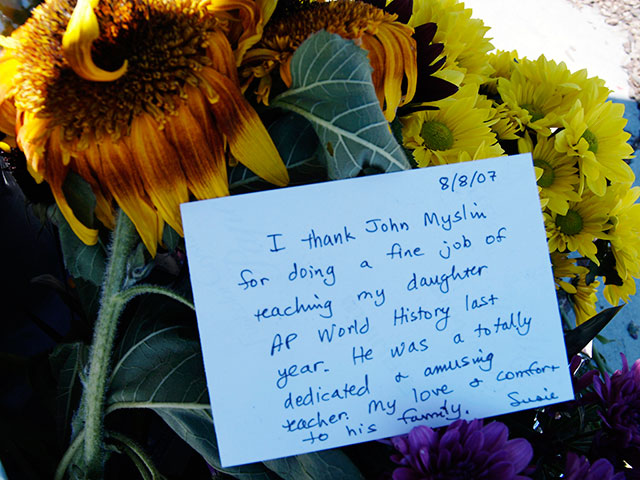 8/8/07
I thank John Myslin
for doing a fine job of
teaching my daughter
AP World History last
year. He was a totally
dedicated & amusing
teacher. My love & comfort
to his family. Susie